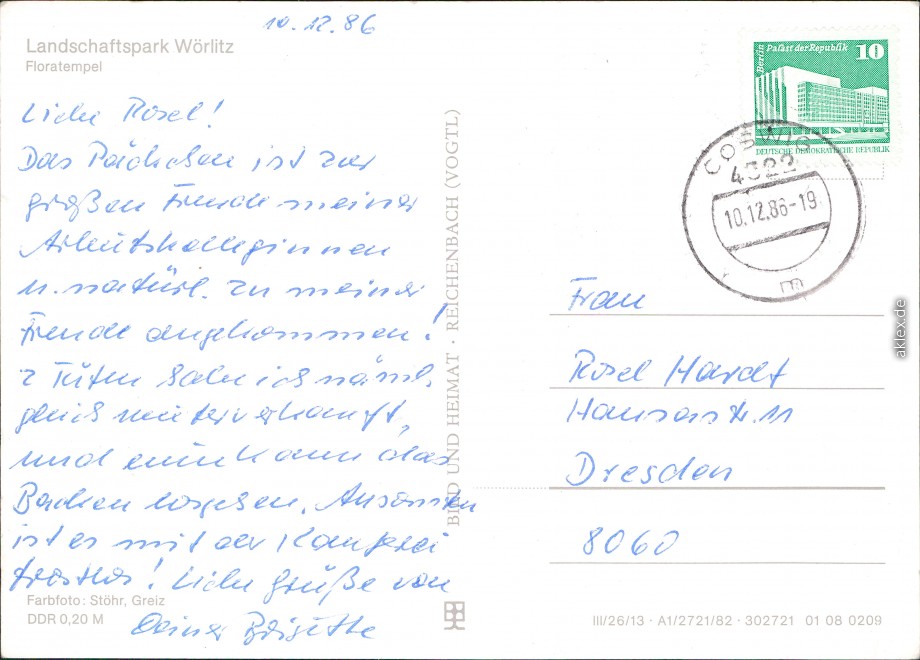 10.12.86
Landschaftspark Wörlitz
Floratempel
Liebe Rosel!
Das Päckchen ist zur
großen Freude meiner
Arbeitskolleginnen
u. natürl. zu meiner
Freude angekommen!
2 Tüten habe ich näml.
gleich weiterverkauft,
und nun kann das
Backen losgehen. Ansonsten
ist es mit der Kauferei
trostlos! Liebe Grüße von
Deiner Brigitte
Farbfoto: Stöhr, Greiz
DDR 0,20 M
BILD UND HEIMAT · REICHENBACH (VOGTL)
Berlin Palast der Republik 10
DEUTSCHE DEMOKRATISCHE REPUBLIK
COSWIG
4522
10.12.86-19
m
Frau
Rosel Hardt
Hansastr. 11
Dresden
8060
III/26/13 · A1/2721/82 · 302721 01 08 0209
aklex.de